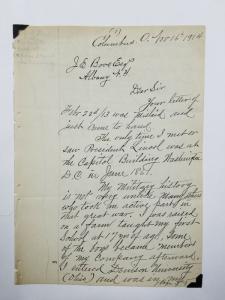 Columbus, O. Apr 16th 1914
J. E. Boos Esqr
Albany N.Y.
Dear Sir
Your letter of
Feby 23d /13 was mislaid and
just come to hand.
The only time I met or
saw President Lincoln was at
the Capitol Building Washington
D.C. in June 1861.
My Military history
is not very unlike many others
who took an active part in
that great war. I was raised
on a farm taught my first
school at 17 yrs of age. Some
of the boys became members
of my company afterward.
I entered Denison University
(Ohio) and was in